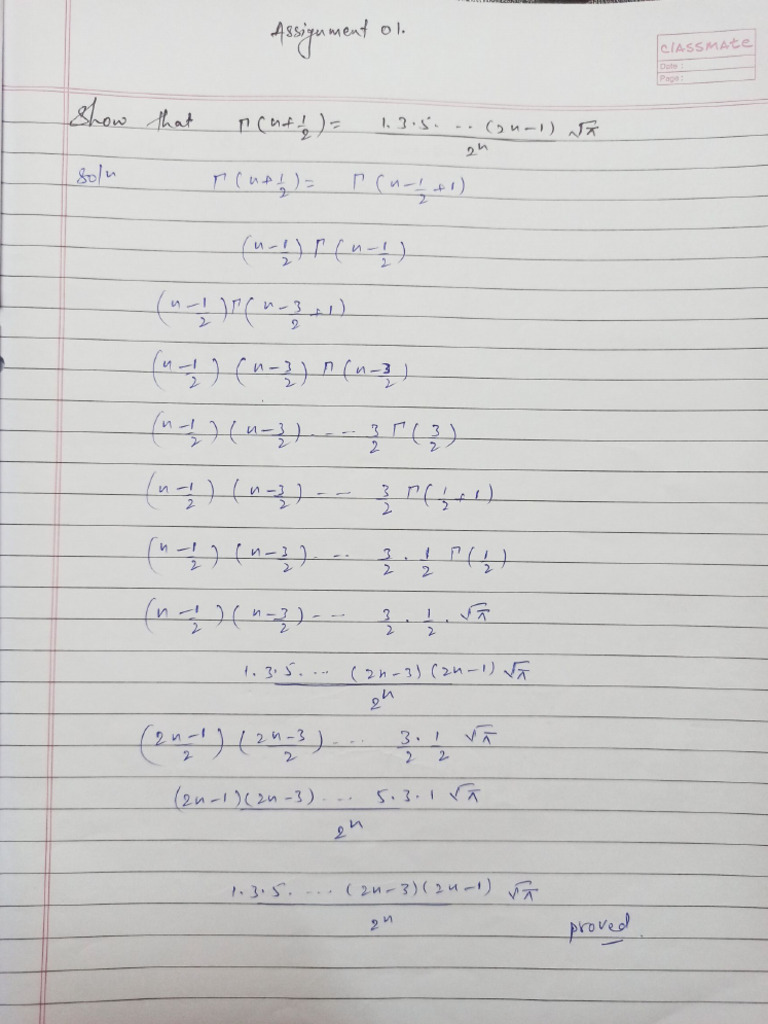 Assignment 01.
classmate
Date :
Page :
Show that Γ(n+1/2) = 1.3.5. ... (2n-1) √π / 2^n
Soln Γ(n+1/2) = Γ(n-1/2+1)
(n-1/2) Γ(n-1/2)
(n-1/2) Γ(n-3/2+1)
(n-1/2) (n-3/2) Γ(n-3/2)
(n-1/2) (n-3/2) ---- 3/2 Γ(3/2)
(n-1/2) (n-3/2) -- -- 3/2 Γ(1/2+1)
(n-1/2) (n-3/2). -- 3/2 . 1/2 Γ(1/2)
(n-1/2) (n-3/2) -- -- 3/2 . 1/2 . √π
1.3.5. ... (2n-3) (2n-1) √π / 2^n
(2n-1/2) (2n-3/2) ... 3/2 . 1/2 √π
(2n-1)(2n-3) ... 5.3.1 √π / 2^n
1.3.5. ... (2n-3)(2n-1) √π / 2^n
proved.